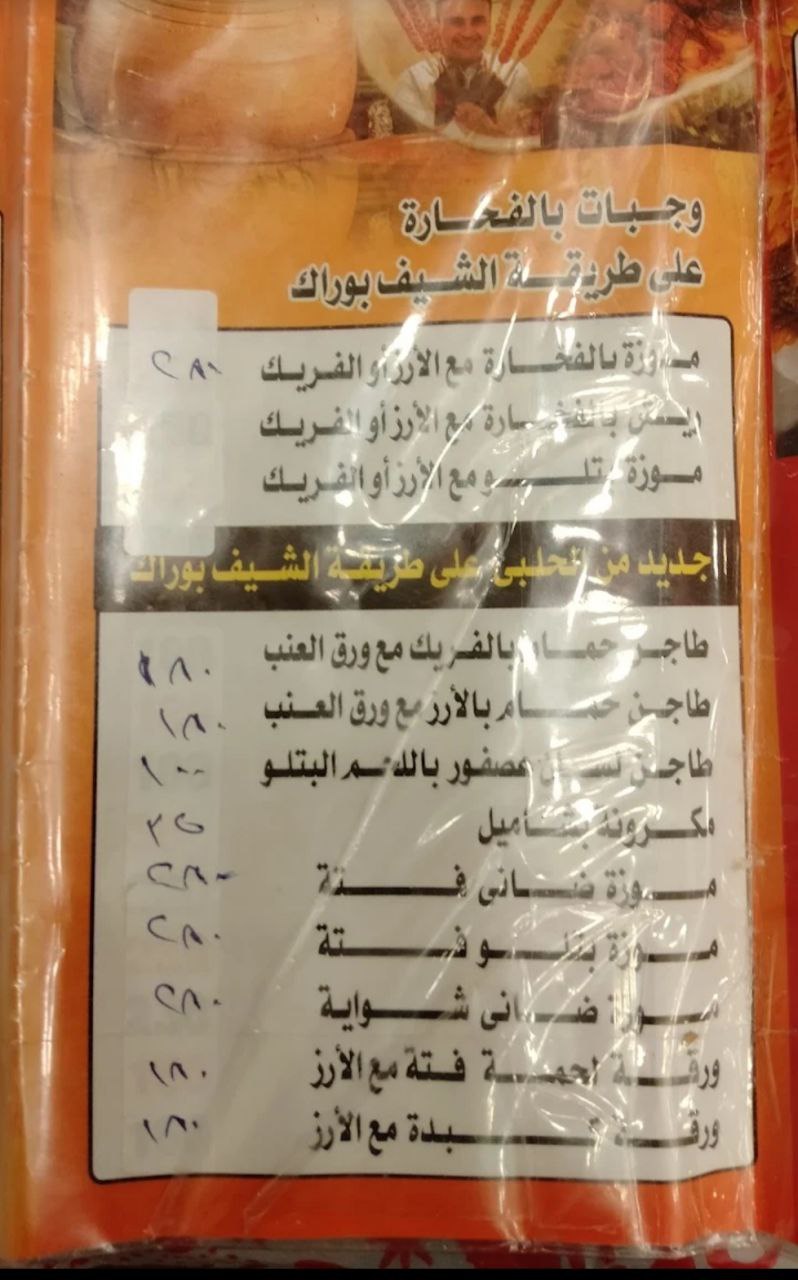 وجبات بالفخارة
على طريقة الشيف بوراك
موزة بالفخارة مع الأرز أو الفريك ٢٨٠
ريش بالفخارة مع الأرز أو الفريك
موزة بتلو مع الأرز أو الفريك
جديد من الحلبى على طريقة الشيف بوراك
طاجن حمام بالفريك مع ورق العنب ١٨٠
طاجن حمام بالأرز مع ورق العنب ١٨٠
طاجن لسان عصفور باللحم البتلو ١٠٠
مكرونة بشاميل ٣٥
موزة ضانى فتة ٢٨٠
موزة بتلو فتة ٢٨٠
موزة ضانى شواية ٢٨٠
ورقة لحمة فتة مع الأرز ١٨٠
ورقة كبدة مع الأرز ١٨٠